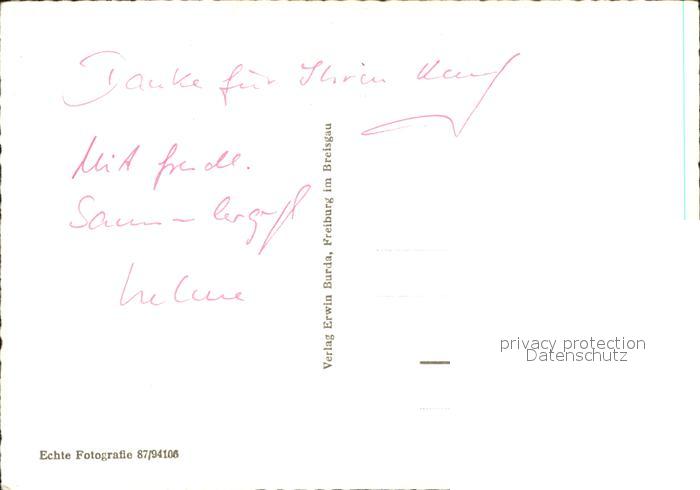 Danke für Ihren Kauf
Mit freudl.
Sammlergruß
Verlag Erwin Burda, Freiburg im Breisgau
privacy protection
Datenschutz
Echte Fotografie 87/94106